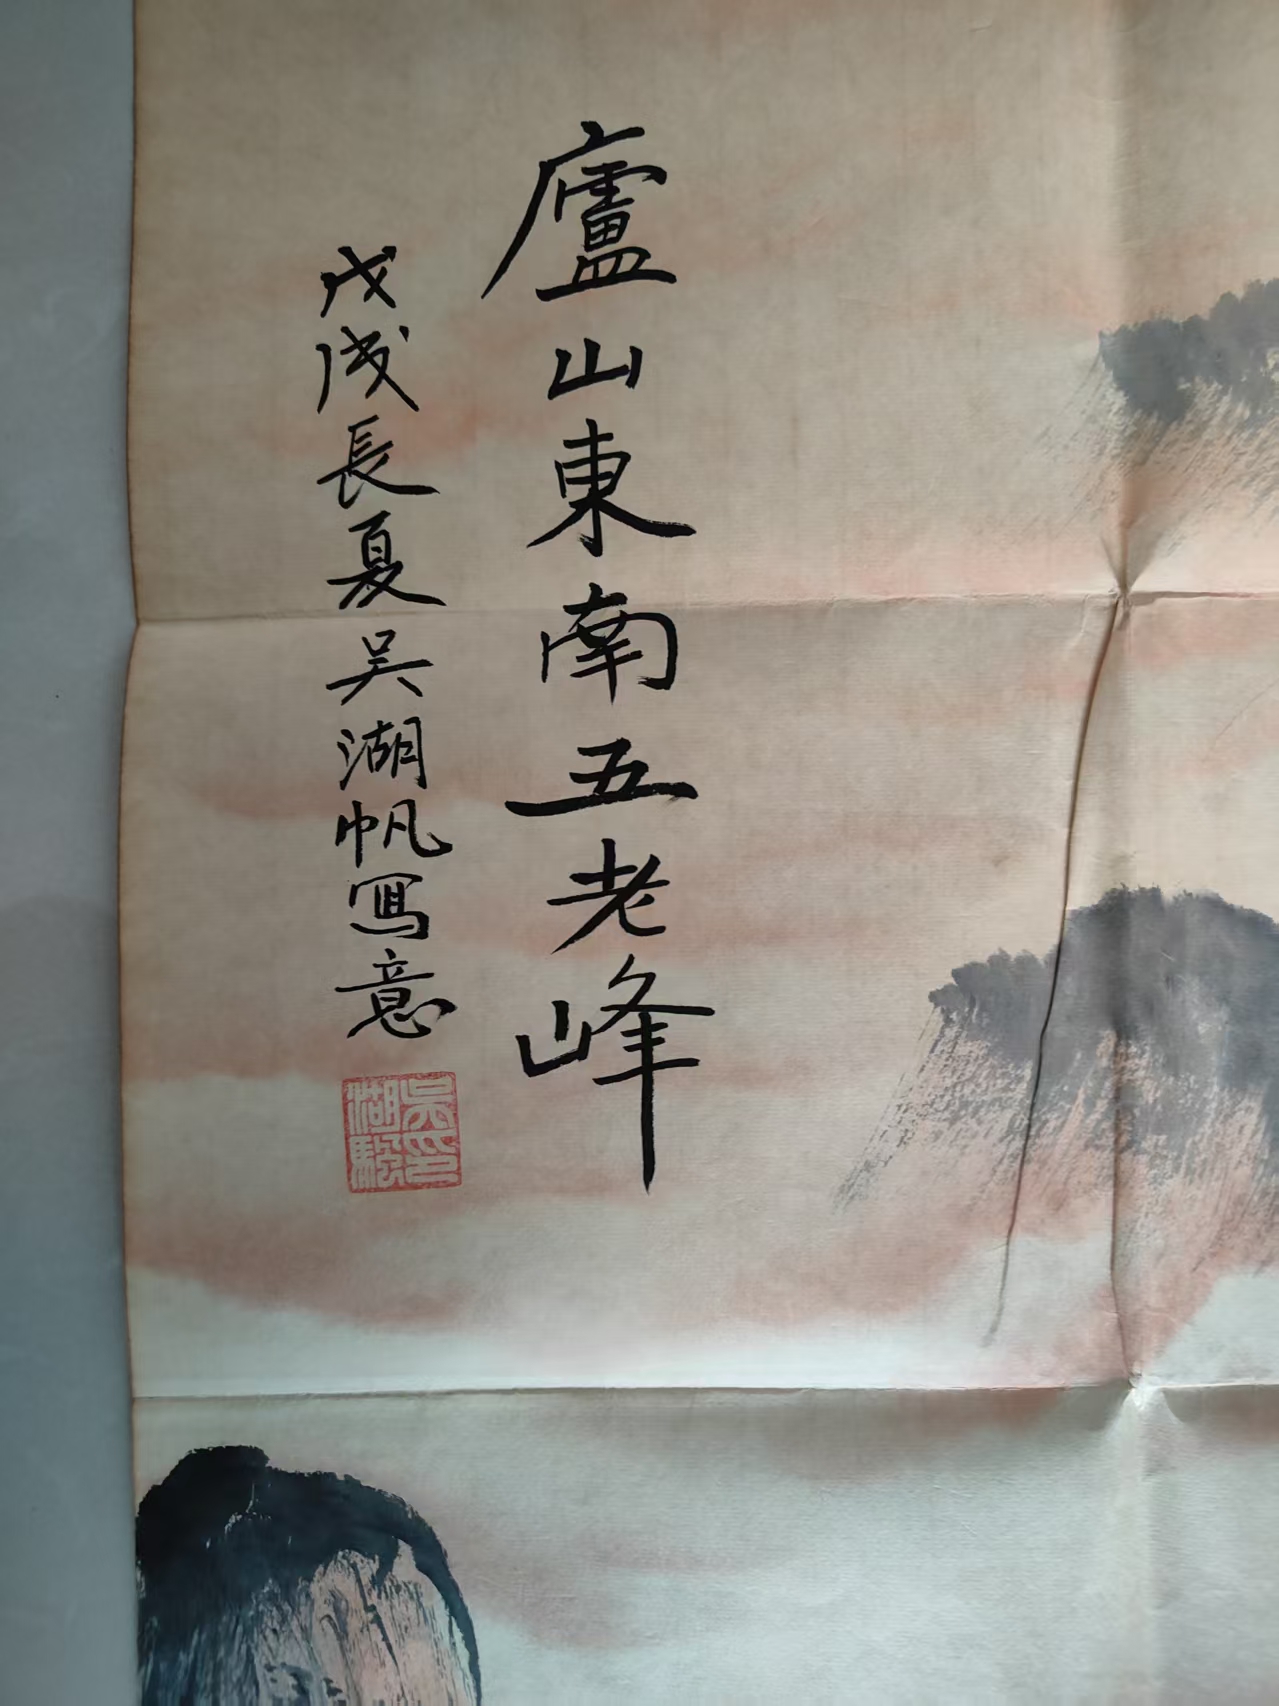 廬山東南五老峰
戊戌長夏吳湖帆寫意
吳湖颿印